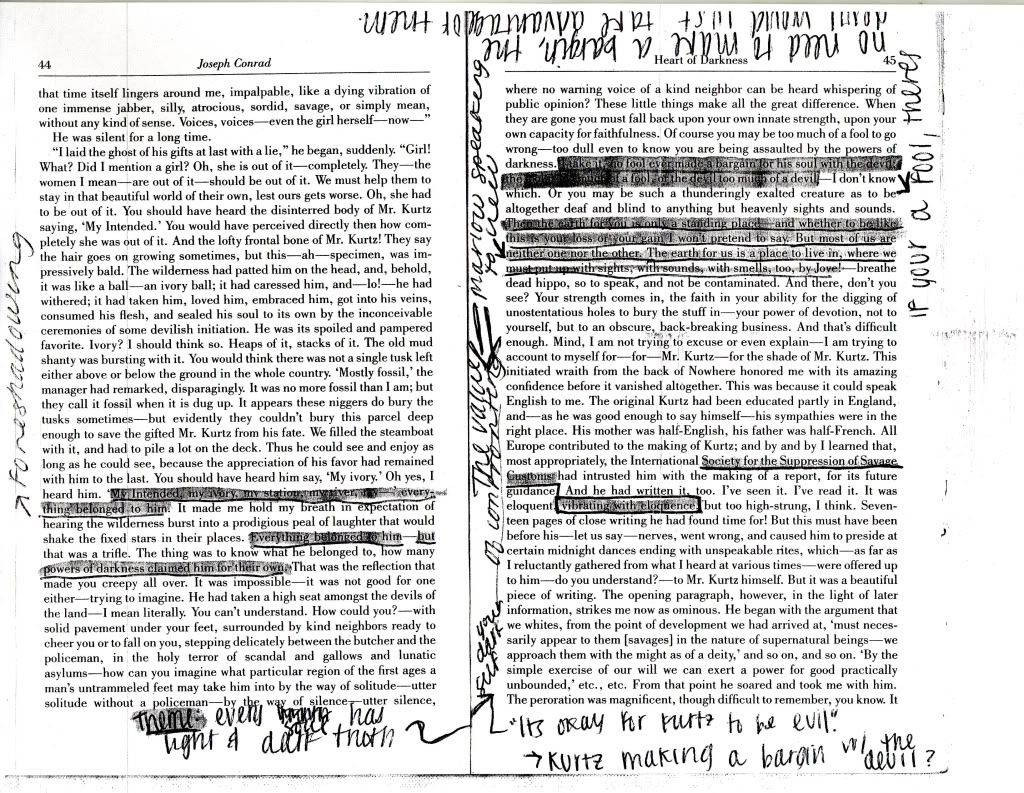 no need to make a bargin, the
devil would just take advantage of them.
44 Joseph Conrad
that time itself lingers around me, impalpable, like a dying vibration of
one immense jabber, silly, atrocious, sordid, savage, or simply mean,
without any kind of sense. Voices, voices—even the girl herself—now—”
He was silent for a long time.
“I laid the ghost of his gifts at last with a lie,” he began, suddenly. “Girl!
What? Did I mention a girl? Oh, she is out of it—completely. They—the
women I mean—are out of it—should be out of it. We must help them to
stay in that beautiful world of their own, lest ours gets worse. Oh, she had
to be out of it. You should have heard the disinterred body of Mr. Kurtz
saying, ‘My Intended.’ You would have perceived directly then how com-
pletely she was out of it. And the lofty frontal bone of Mr. Kurtz! They say
the hair goes on growing sometimes, but this—ah—specimen, was im-
pressively bald. The wilderness had patted him on the head, and, behold,
it was like a ball—an ivory ball; it had caressed him, and—lo!—he had
withered; it had taken him, loved him, embraced him, got into his veins,
consumed his flesh, and sealed his soul to its own by the inconceivable
ceremonies of some devilish initiation. He was its spoiled and pampered
favorite. Ivory? I should think so. Heaps of it, stacks of it. The old mud
shanty was bursting with it. You would think there was not a single tusk left
either above or below the ground in the whole country. ‘Mostly fossil,’ the
manager had remarked, disparagingly. It was no more fossil than I am; but
they call it fossil when it is dug up. It appears these niggers do bury the
tusks sometimes—but evidently they couldn’t bury this parcel deep
enough to save the gifted Mr. Kurtz from his fate. We filled the steamboat
with it, and had to pile a lot on the deck. Thus he could see and enjoy as
long as he could see, because the appreciation of his favor had remained
with him to the last. You should have heard him say, ‘My ivory.’ Oh yes, I
heard him. ‘My Intended, my ivory, my station, my river, my every-
thing belonged to him. It made me hold my breath in expectation of
hearing the wilderness burst into a prodigious peal of laughter that would
shake the fixed stars in their places. Everything belonged to him—but
that was a trifle. The thing was to know what he belonged to, how many
powers of darkness claimed him for their own. That was the reflection that
made you creepy all over. It was impossible—it was not good for one
either—trying to imagine. He had taken a high seat amongst the devils of
the land—I mean literally. You can’t understand. How could you?—with
solid pavement under your feet, surrounded by kind neighbors ready to
cheer you or to fall on you, stepping delicately between the butcher and the
policeman, in the holy terror of scandal and gallows and lunatic
asylums—how can you imagine what particular region of the first ages a
man’s untrammeled feet may take him into by the way of solitude—utter
solitude without a policeman—by the way of silence—utter silence,
Foreshadowing
Theme: every has
light & dark
The value
of
= marlow speaking
to
Heart of Darkness 45
where no warning voice of a kind neighbor can be heard whispering of
public opinion? These little things make all the great difference. When
they are gone you must fall back upon your own innate strength, upon your
own capacity for faithfulness. Of course you may be too much of a fool to go
wrong—too dull even to know you are being assaulted by the powers of
darkness. I take it, no fool ever made a bargain for his soul with the devil:
the fool is too much of a fool, or the devil too much of a devil—I don’t know
which. Or you may be such a thunderingly exalted creature as to be
altogether deaf and blind to anything but heavenly sights and sounds.
Then the earth for you is only a standing place—and whether to be like
this is your loss or your gain I won’t pretend to say. But most of us are
neither one nor the other. The earth for us is a place to live in, where we
must put up with sights, with sounds, with smells, too, by Jove!—breathe
dead hippo, so to speak, and not be contaminated. And there, don’t you
see? Your strength comes in, the faith in your ability for the digging of
unostentatious holes to bury the stuff in—your power of devotion, not to
yourself, but to an obscure, back-breaking business. And that’s difficult
enough. Mind, I am not trying to excuse or even explain—I am trying to
account to myself for—for—Mr. Kurtz—for the shade of Mr. Kurtz. This
initiated wraith from the back of Nowhere honored me with its amazing
confidence before it vanished altogether. This was because it could speak
English to me. The original Kurtz had been educated partly in England,
and—as he was good enough to say himself—his sympathies were in the
right place. His mother was half-English, his father was half-French. All
Europe contributed to the making of Kurtz; and by and by I learned that,
most appropriately, the International Society for the Suppression of Savage
Customs had intrusted him with the making of a report, for its future
guidance. And he had written it, too. I’ve seen it. I’ve read it. It was
eloquent, vibrating with eloquence, but too high-strung, I think. Seven-
teen pages of close writing he had found time for! But this must have been
before his—let us say—nerves, went wrong, and caused him to preside at
certain midnight dances ending with unspeakable rites, which—as far as
I reluctantly gathered from what I heard at various times—were offered up
to him—do you understand?—to Mr. Kurtz himself. But it was a beautiful
piece of writing. The opening paragraph, however, in the light of later
information, strikes me now as ominous. He began with the argument that
we whites, from the point of development we had arrived at, ‘must neces-
sarily appear to them [savages] in the nature of supernatural beings—we
approach them with the might as of a deity,’ and so on, and so on. ‘By the
simple exercise of our will we can exert a power for good practically
unbounded,’ etc., etc. From that point he soared and took me with him.
The peroration was magnificent, though difficult to remember, you know. It
If your a fool, theres
"Its okay for Kurtz to be evil".
→ Kurtz making a bargin w/ the
devil?